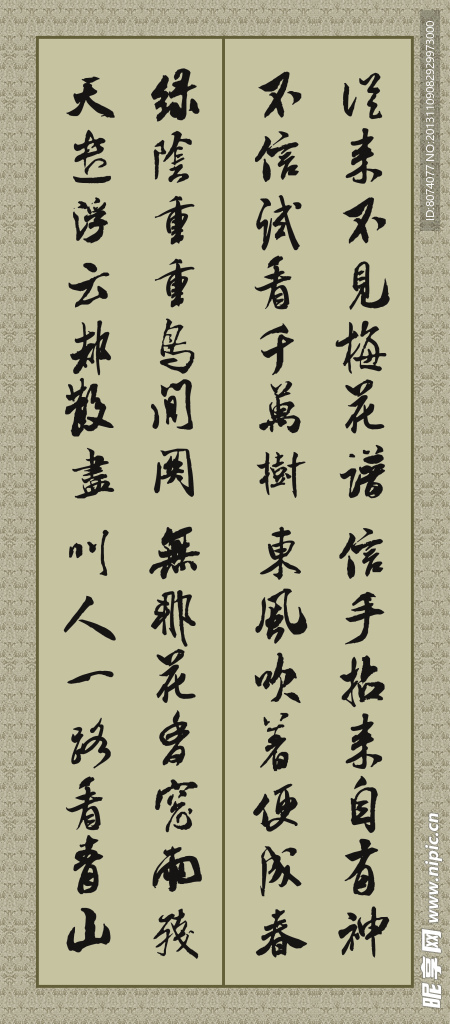 從来不見梅花譜信手拈来自有神
不信試看千萬樹東風吹著便成春
綠陰重重鳥間関無那花香窓雨殘
天遣浮云都散盡叫人一路看青山
ID:8074077 NO:20131109082929973000
昵享网 www.nipic.cn